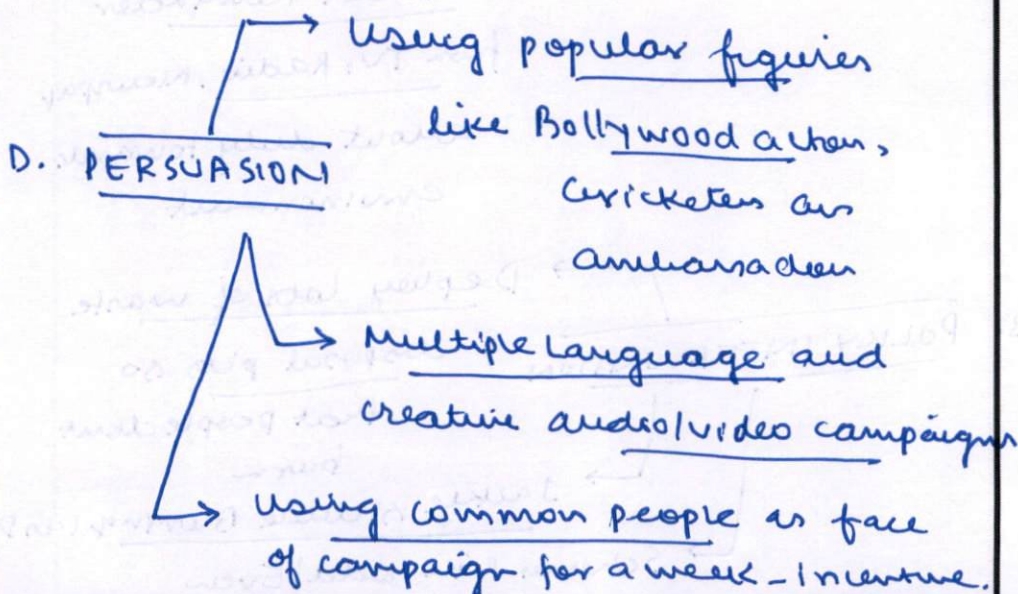 Using popular figures
like Bollywood actors,
D. PERSUASION
cricketers as
ambassadors
Multiple language and
creative audio/video campaigns
Using common people as face
of campaign for a week - incentive.